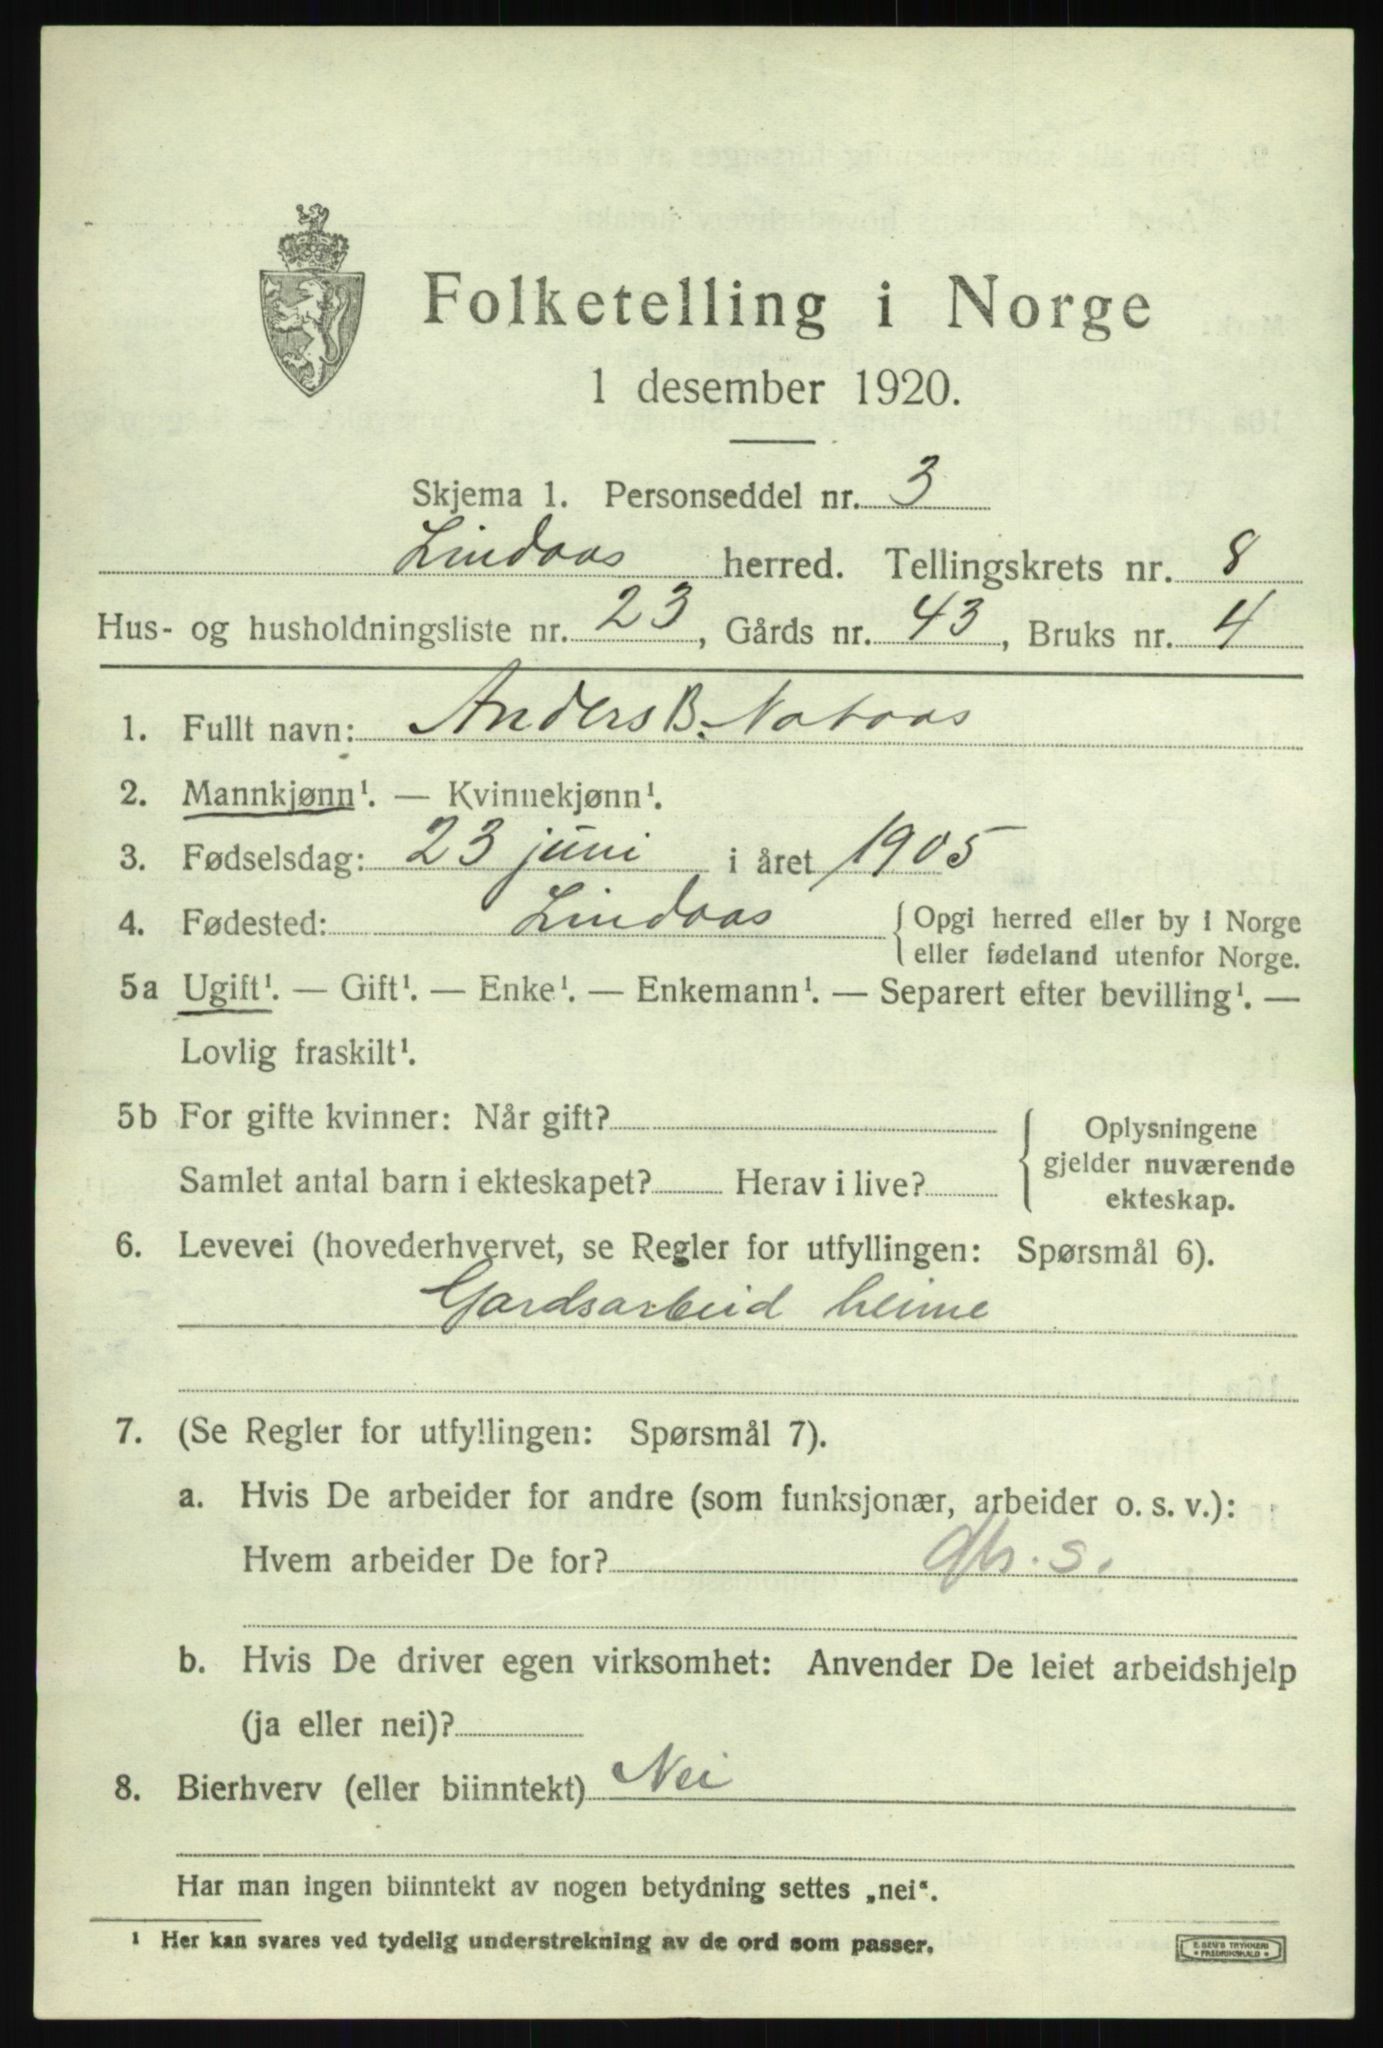 Folketelling i Norge
1 desember 1920.
Skjema 1. Personseddel nr. 3
Lindaas herred. Tellingskrets nr. 8
Hus- og husholdningsliste nr. 23, Gårds nr. 43, Bruks nr. 4
1. Fullt navn: Anders B. Nataas
2. Mannkjønn¹. — Kvinnekjønn¹.
3. Fødselsdag: 23 juni i året 1905
4. Fødested: Lindaas { Opgi herred eller by i Norge
eller fødeland utenfor Norge.
5a Ugift¹. — Gift¹. — Enke¹. — Enkemann¹. — Separert efter bevilling¹. —
Lovlig fraskilt¹.
5b For gifte kvinner: Når gift?
Samlet antal barn i ekteskapet? Herav i live?
Oplysningene
gjelder nuværende
ekteskap.
6. Levevei (hovederhvervet, se Regler for utfyllingen: Spørsmål 6).
Gardsarbeid heime
7. (Se Regler for utfyllingen: Spørsmål 7).
a. Hvis De arbeider for andre (som funksjonær, arbeider o. s. v.):
Hvem arbeider De for?
b. Hvis De driver egen virksomhet: Anvender De leiet arbeidshjelp
(ja eller nei)?
8. Bierhverv (eller biinntekt) Nei
Har man ingen biinntekt av nogen betydning settes „nei“.
¹ Her kan svares ved tydelig understrekning av de ord som passer.
E. SEM'S TRYKKERI
FREDRIKSHALD